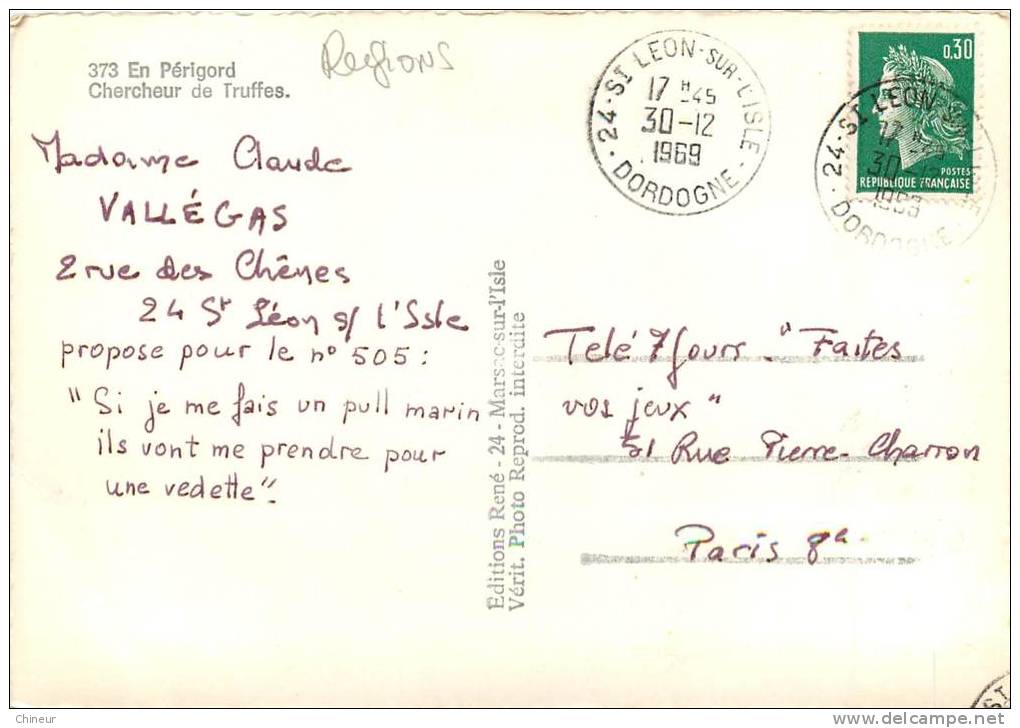 373 En Périgord
Chercheur de Truffes.
Regions
24 - ST LEON-SUR-L'ISLE - DORDOGNE
17 H 45
30-12
1969
0,30
POSTES
REPUBLIQUE FRANÇAISE
24 - ST LEON-SUR-L'ISLE
30-12
1969
DORDOGNE
Madame Claude
VALLÉGAS
2 rue des Chênes
24 St Léon s/ l'Isle
propose pour le n° 505 :
"Si je me fais un pull marin
ils vont me prendre pour
une vedette".
Editions René - 24 - Marsac-sur-l'Isle
Vérit. Photo Reprod. interdite
Telé 7 Jours - "Faites
vos jeux"
51 Rue Pierre-Charron
Paris 8e
ST
Chineur
www.delcampe.net